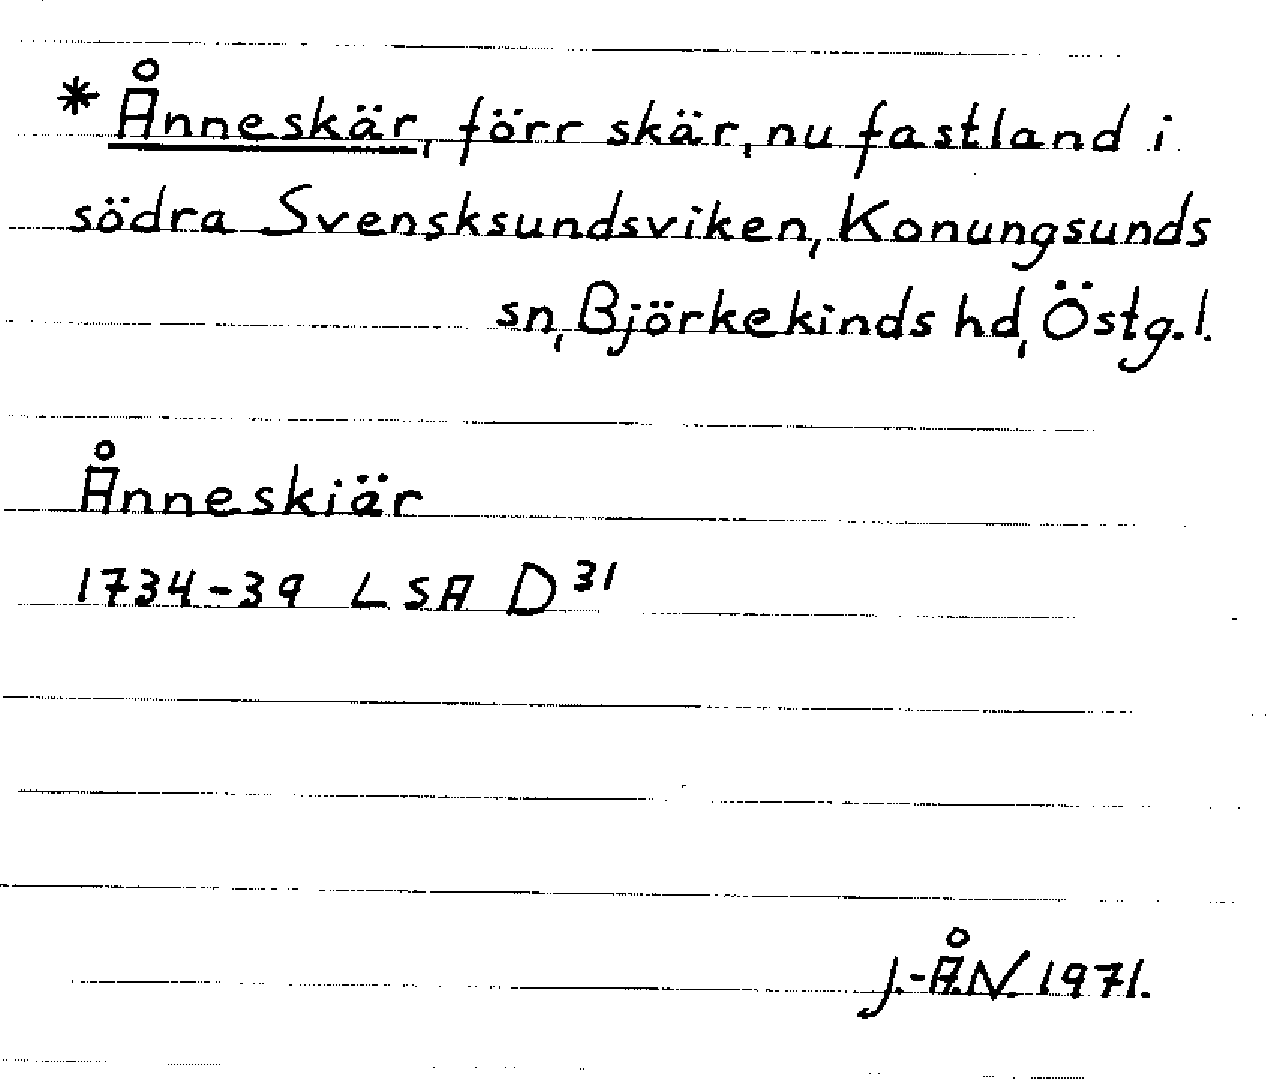 * Ånneskär, förr skär, nu fastland i
södra Svensksundsviken, Konungsunds
sn, Björkekinds hd, Östg. l.
Ånneskiär
1734-39 LSA D³¹
J.-Å.N. 1971.